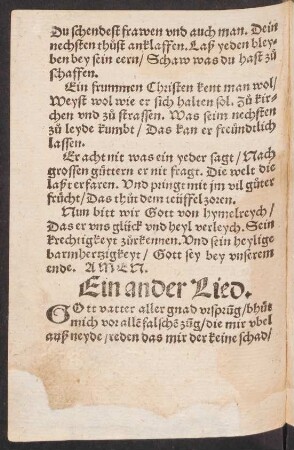 Du schendest frawen vnd auch man. Dein
nechsten thůst anklaffen. Laß yeden bley-
ben bey sein eern/ Schaw was du hast zů
schaffen.
Ein frummen Christen kent man wol/
Weyst wol wie er sich halten sol. Zů kir-
chen vnd zů strassen. Was seim nechsten
zů leyde kumbt/ Das kan er freündtlich
lassen.
Er acht nit was ein yeder sagt/ Nach
grossen güttern er nit fragt. Die welt die
laßt er faren. Vnd pringt mit jm vil gůter
frücht/ Das thůt dem teüffel zoren.
Nun bitt wir Gott von hymelreych/
Das er vns glück vnd heyl verleych. Sein
krechtigkeyt zůrkennen. Vnd sein heylige
barmhertzigkeyt/ Gott sey bey vnserem
ende. AMEN.
Ein ander Lied.
GOtt vatter aller gnad vrsprũg/ bhůt
mich vor allẽ falschẽ zũg/ die mir vbel
auß neyde/ reden das mir der keine schad/